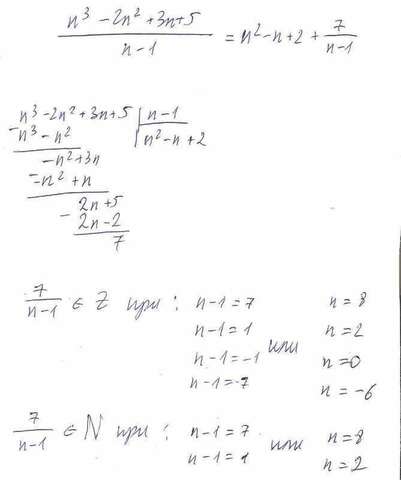 n³ - 2n² + 3n + 5 / n - 1 = n² - n + 2 + 7 / n - 1
n³ - 2n² + 3n + 5 | n - 1
- n³ - n² | n² - n + 2
-n² + 3n
- -n² + n
2n + 5
- 2n - 2
7
7 / n - 1 ∈ Z при : n - 1 = 7 или n = 8
n - 1 = 1 n = 2
n - 1 = -1 n = 0
n - 1 = -7 n = -6
7 / n - 1 ∈ N при : n - 1 = 7 или n = 8
n - 1 = 1 n = 2